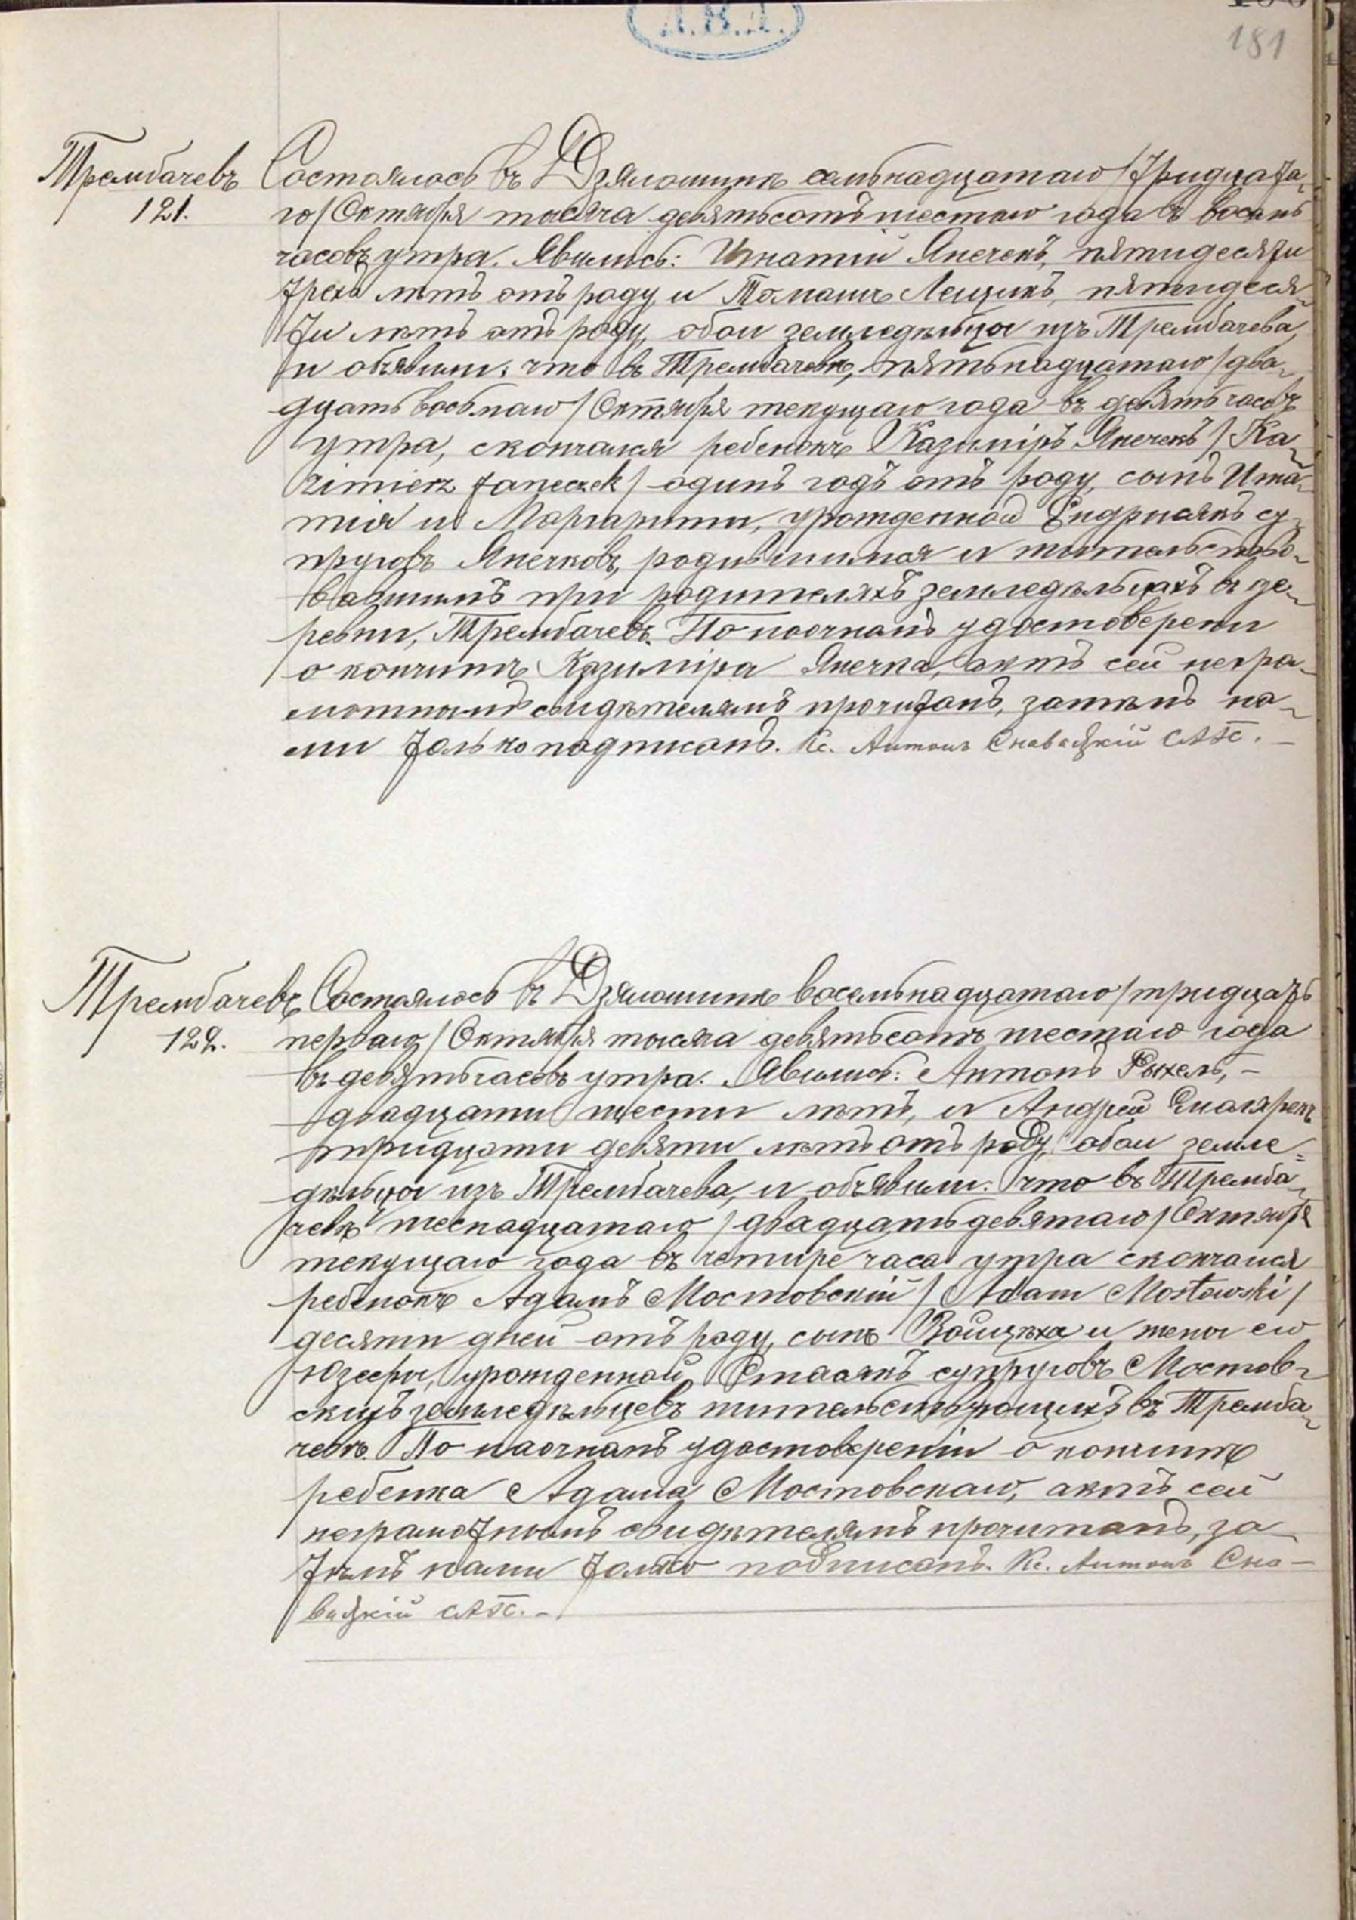 181
Трембачевъ
121.
Состоялось въ Дзялошинѣ семьнадцатаго /тридцата-
го/ Октября тысяча девятьсотъ шестаго года въ восемь
часовъ утра. Явились: Игнатій Янечекъ, пятидесяти
трехъ лѣтъ отъ роду и Томашъ Лещикъ, пятидеся-
ти лѣтъ отъ роду, обои земледѣльцы изъ Трембачева,
и объявили: что въ Трембачевѣ, пятьнадцатаго /два-
дцать восьмаго/ Октября текущаго года въ девять часовъ
утра, скончался ребенокъ Казиміръ Янечекъ /Ka-
zimierz Janeczek/ одинъ годъ отъ роду, сынъ Игна-
тія и Маргариты, урожденной Ендрысякъ су-
пруговъ Янечковъ, родившимся и жительство-
вавшимъ при родителяхъ земледѣльцахъ въ де-
ревни, Трембачевъ. По наочномъ удостоверени
о кончинѣ Казиміра Янечка, актъ сей негра-
мотнымъ свидѣтелямъ прочитанъ, затѣмъ на-
ми только подписанъ. Кс. Антонъ
Трембачевъ
122.
Состоялось въ Дзялошинѣ восемьнадцатаго /тридцать
перваго/ Октября тысяча девятьсотъ шестаго года
въ девять часовъ утра. Явились: Антонъ Рыхель, –
двадцати шести лѣтъ, и Андрей
тридцати девяти лѣтъ отъ роду, обои земле=
дѣльцы изъ Трембачева, и объявили: что въ Тремба-
чевѣ шеснадцатаго /двадцать девятаго/ Октября
текущаго года въ четыре часа утра скончался
ребенокъ Адамъ Мостовскій /Adam Mostowski/
десяти дней отъ роду, сынъ Войцѣха и жены его
Юзефы, урожденной Стасякъ супруговъ Мостов-
скихъ земледѣльцевъ жительствующихъ въ Тремба-
чевѣ. По наочномъ удостовереніи о кончинѣ
ребенка Адама Мостовскаго, актъ сей
неграмотнымъ свидѣтелямъ прочитанъ, за-
тѣмъ нами только подписанъ. Кс. Антонъ